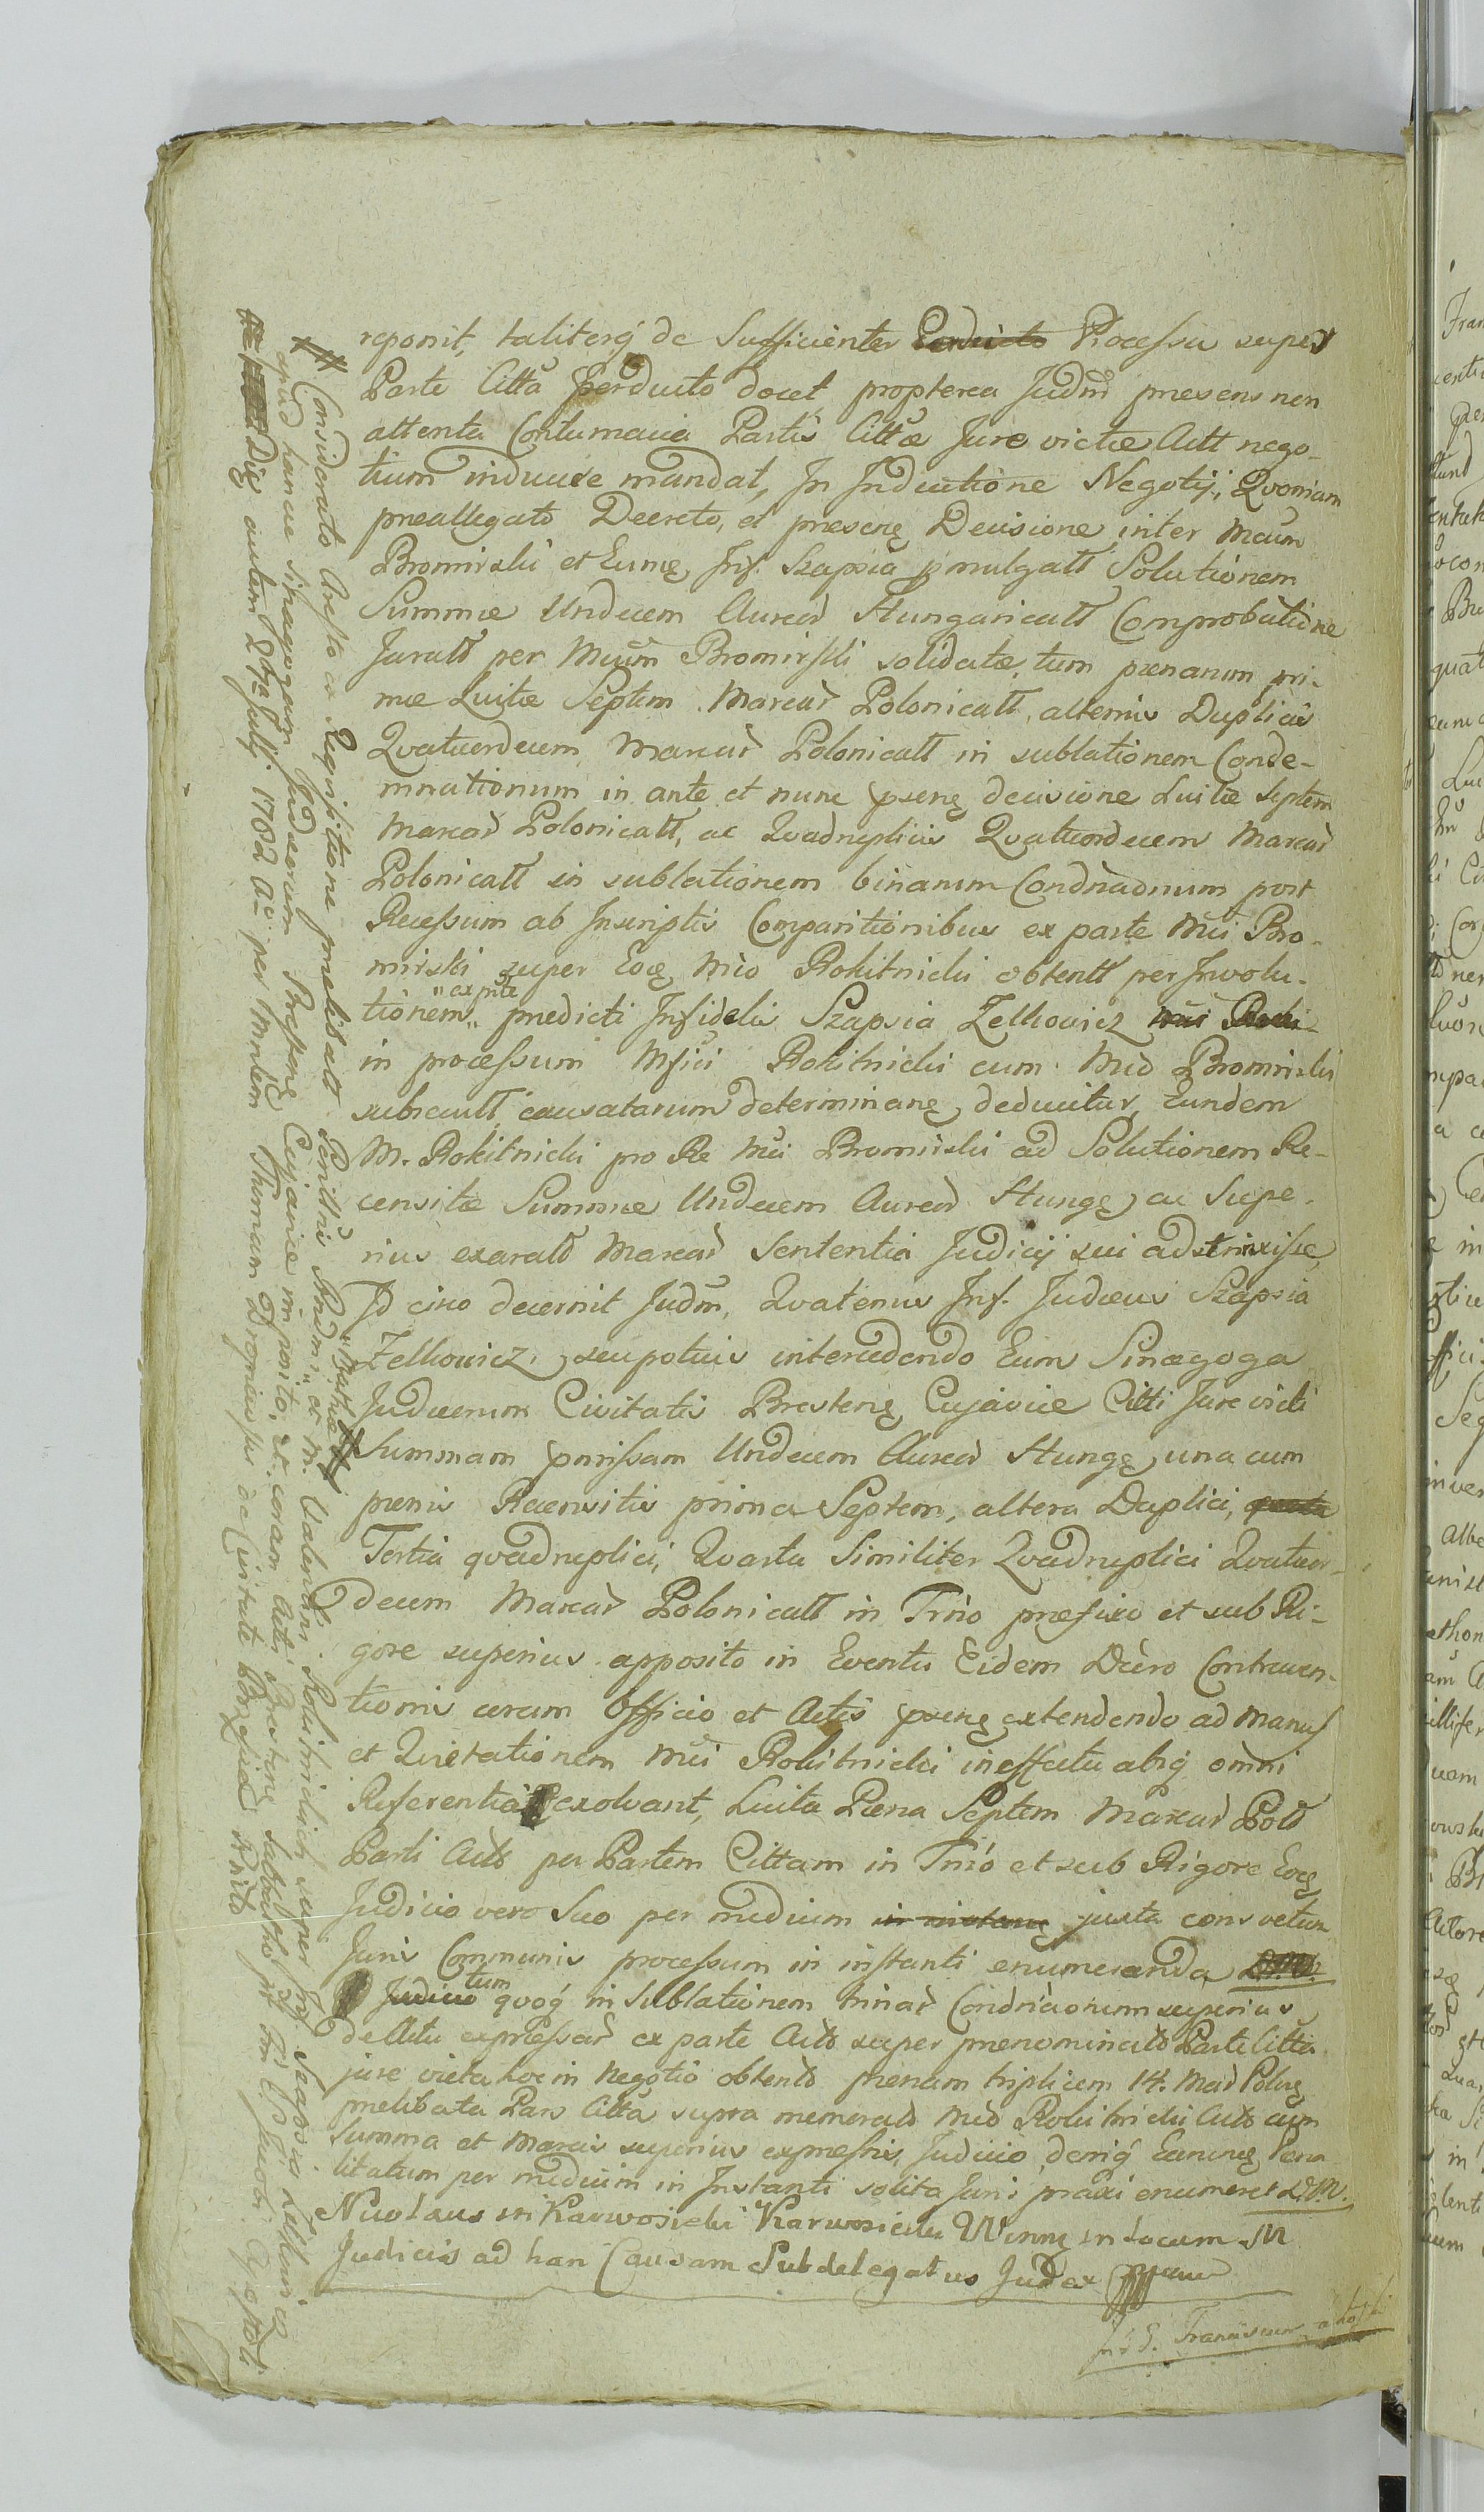 reponit, taliterq́ de Sufficienter Perducto Processu super
Parte Citta perducto docet propterea Judm̃ presens non
attenta Contumacia Partis Cittæ Jure victæ Actt nego-
tium inducere mandat, In Inductione Negotij, Qvoniam
preallegato Decreto, et presenę Decisione inter Mcum
Bromirski et Eumę Inf. Szapsia pmulgatt Solutionem
Summæ Undecem Aureoř Hungaricatt Comprobatione
Juratt per Mcum Bromirski solidatæ, tum pœnarum pri-
mæ Luitæ Septem Marcař Polonicatt, alterius Duplicis
Qvatuordecem Marcař Polonicatt in sublationem Conde-
mnationum in ante et nunc psenę decisione Luitæ Septem
Marcař Polonicatt, ac Qvadruplicis Qvatuordecem Marcař
Polonicatt in sublationem binarum Condnaõnum post
Recessum ab Inscriptis Comparitionibus ex parte Mci Bro-
mirski super Eoę Mco Rokitnicki obtentt per Involu-
tionem "ex pte" predicti Infidelis Szapsia Zelkowicz
in processum Mfici Rokitnicki cum Mco Bromirski
subsecutt causatarum determinanę deducitur, Eundem
M. Rokitnicki pro Re Mci Bromirski ad Solutionem Re-
censitæ Summæ Undecem Aureoř Hungę ac supe-
rius exaratt Marcař Sententia Judicij sui adstrinxisse,
Id circo decernit Judm̃, Qvatenus Inf. Judæus Szapsia
Zelkowicz, seu potuis intercedendo Eum Sinagoga
Judæorum Civitatis Brestenę Cujaviæ Citti Jure victi
Summam pmissam Undecem Aureoř Hungę una cum
pœnis Recensitis prima Septem, altera Duplici,
Tertia qvadruplici, Qvarta Similiter Qvadruplici Qvatuor-
decem Marcař Polonicatt in Tr̃io præfixo et sub Ri-
gore superius apposito in Eventu Eidem Dcro Contraven-
tionis coram Officio et Actis psenę extendendo ad Manus
et Qvietationem Mci Rokitnicki in effectu absq́ omni
Referentia exolvant, Luita Pœna Septem Marcař Polo
Parti Acto per Partem Cittam in Tr̃io et sub Rigore Eoę
Judicio vero Suo per medium in instanę juxta consvetum
Juris Communis processum in instanti enumeranda D.M.
Judicio tum qvoq́ in Sublationem trinař Condnãonum superius
de Actu expressař ex parte Acto super prænominato Parte Citta
jure victa hoc in negotio obtento pœnam triplicem 14. Mař Polnę
prelibata Pars Citta supra memorato Mco Rokitnicki Acto cum
Summa et Marcis superius expressis, Judicio deniq́ Earumę Pœna
litatum per medium in Instanti solita Juris praxi enumeret D.M.
Nicolaus in Karwosiecki Karwosiecki Winnę in Locum M
Judicis ad han Causam Subdelegatus Judex
In d S. Franciscum
# Considerato Aresto ac Reqvisitione prælibatt Pertt Andm "Mathia" ac M. Valentini Rokitnickich super Inf. Szapsia Zelkowicz
apud hancæ Sinagogam Judæorum Brestenę Cujaviæ imposito, et coram Actis Brestenę Sabbatho
Die autem 27ta Julij 1782 Ao per Mnlem Thomam Dromiensis de Civitate